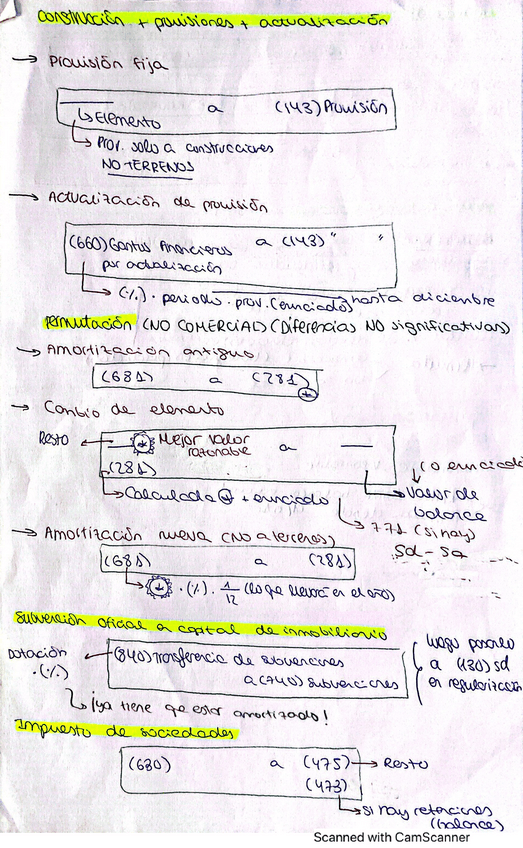 construcción + provisiones + actualización
→ Provisión fija
— a (143) Provisión
↳ Elemento
↳ Prov. solo a construcciones
NO TERRENOS
→ Actualización de provisión
(660) Gastos financieros a (143) " "
por actualización
↳ (%) · periodo · prov. (enunciado) hasta diciembre
Permutación (NO COMERCIAL) (Diferencias NO significativas)
→ Amortización antiguo
(681) a (281)
→ Cambio de elemento
Resto ← Mejor valor a —
razonable
(281)
(o enunciado
↳ Calculada + enunciado
→ Valor de
balance
↳ 771 (si hay)
Sd - Sa
→ Amortización nueva (NO a terrenos)
(681) a (281)
↳ · (%) · 1/12 (lo que llevará en el año)
Subvención oficial a capital de inmobiliario
Dotación ← (840) Transferencia de subvenciones
· (%) a (740) subvenciones
luego pasarlo
a (130) sd
en regularización
↳ ¡ya tiene que estar amortizado!
Impuesto de sociedades
(630) a (475) → Resto
(473)
↳ Si hay retenciones
(balance)
Scanned with CamScanner